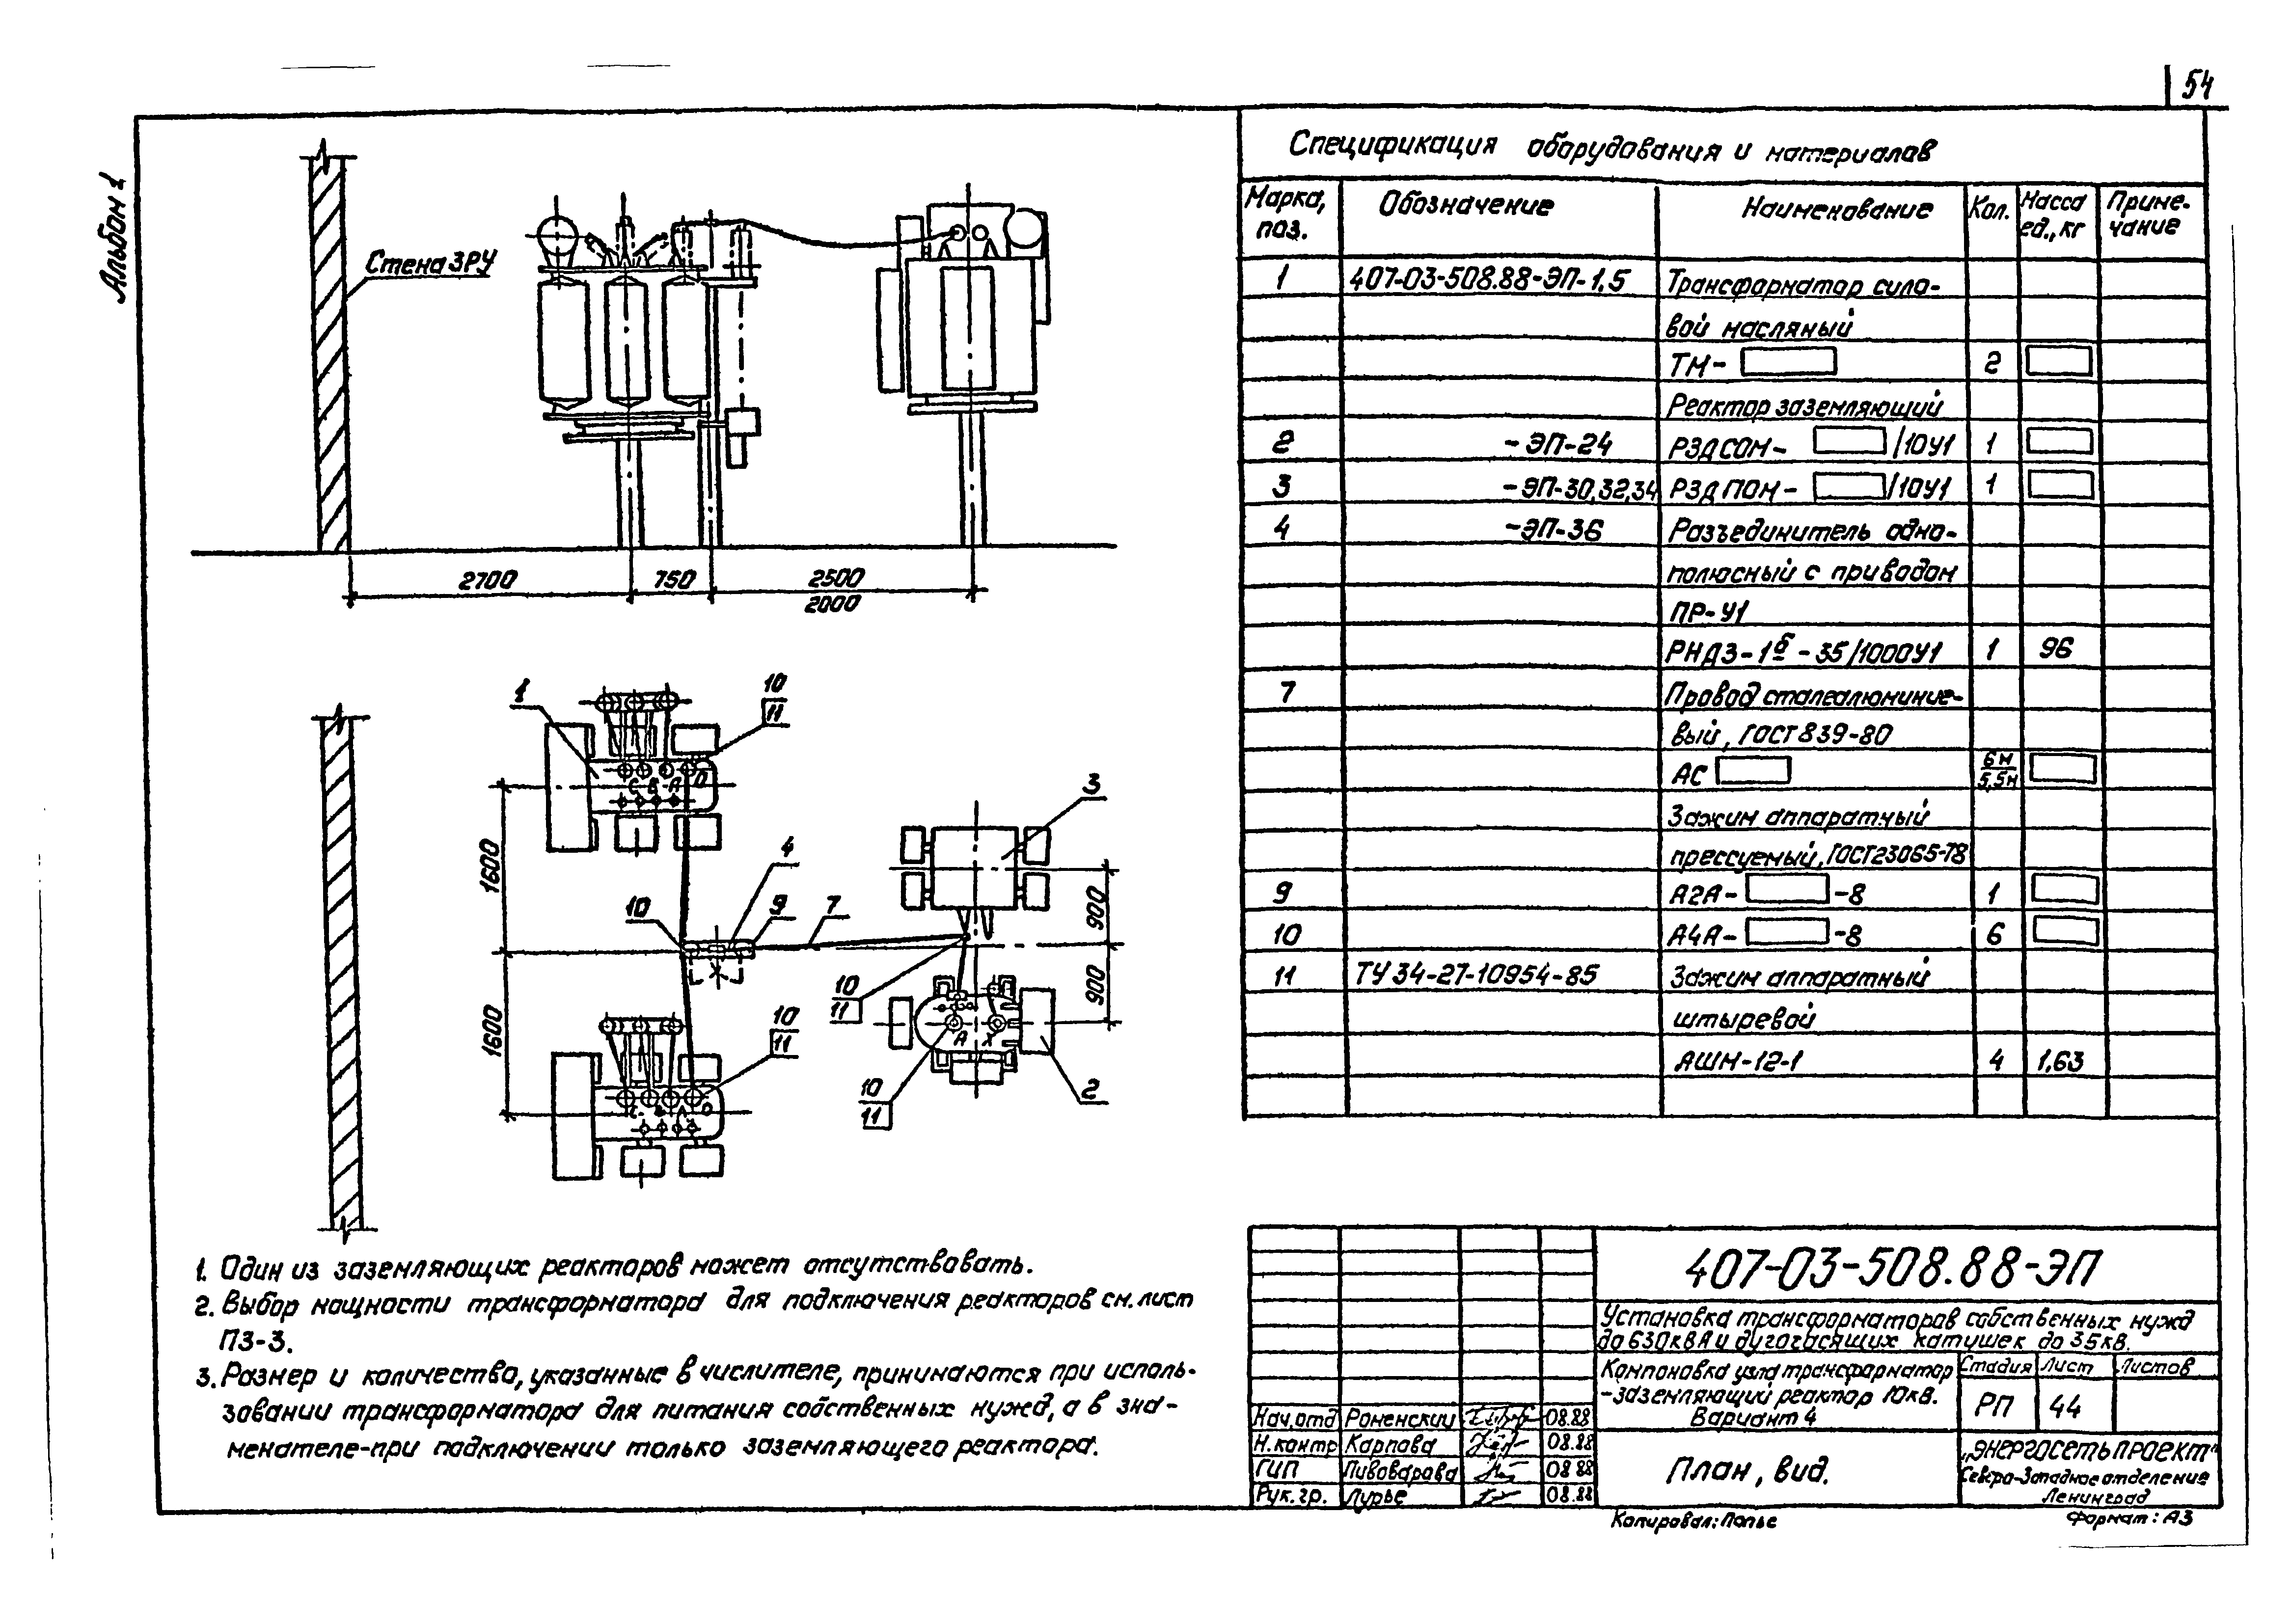 54
Альбом 1
Стена ЗРУ
2700
750
2500
2000
1
10
11
С В А О
1600
4
10
9
7
3
900
1600
10
11
10
11
900
А Х
10
11
2
С В А О
1. Один из заземляющих реакторов может отсутствовать.
2. Выбор мощности трансформатора для подключения реакторов см. лист
ПЗ-3.
3. Размер и количество, указанные в числителе, принимаются при исполь-
зовании трансформатора для питания собственных нужд, а в зна-
менателе-при подключении только заземляющего реактора.
Спецификация оборудования и материалов
Марка, поз. Обозначение Наименование Кол. Масса ед., кг Приме-чание
1 407-03-508.88-ЭП-1,5 Трансформатор сило-
вой масляный
ТМ- 2
Реактор заземляющий
2 -ЭП-24 РЗДСОМ- /10У1 1
3 -ЭП-30,32,34 РЗДПОМ- /10У1 1
4 -ЭП-36 Разъединитель одно-
полюсный с приводом
ПР-У1
РНДЗ-1б-35/1000У1 1 96
7 Провод сталеалюминие-
вый, ГОСТ 839-80
АС 6м/5,5м
Зажим аппаратный
прессуемый, ГОСТ23065-78
9 А2А- -8 1
10 А4А- -8 6
11 ТУ 34-27-10954-85 Зажим аппаратный
штыревой
АШМ-12-1 4 1,63
407-03-508.88-ЭП
Установка трансформаторов собственных нужд
до 630кВА и дугогасящих катушек до 35кВ.
Компоновка узла трансформатор
-заземляющий реактор 10кВ.
Вариант 4
Стадия Лист Листов
РП 44
Нач.отд Роменский 08.88
Н.контр Карпова 08.88
ГИП Пивоварова 08.88
Рук.гр. Лурье 08.88
План, вид.
"ЭНЕРГОСЕТЬПРОЕКТ"
Северо-Западное отделение
Ленинград
Копировал: Полье
Формат: А3